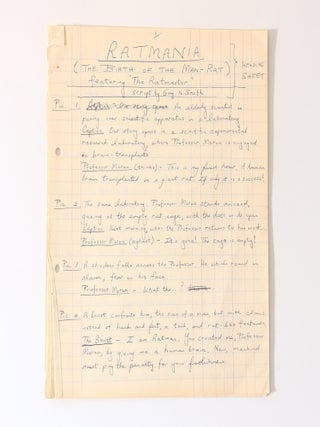 RATMANIA
(THE BIRTH OF THE MAN-RAT) HEADING
featuring "The Ratmaster" SHEET
script by Guy N. Smith
Pic 1. An elderly scientist is
poring over scientific apparatus in a laboratory.
Caption Our story opens in a scientific experimental
research laboratory, where Professor Moran is engaged
in brain-transplants
Professor Moran (thinks) - This is my finest hour. A human
brain transplanted in a giant rat. If only it is a success!
Pic 2. The same laboratory. Professor Moran stands amazed,
gazing at the empty rat cage, with the door wide open
Caption Next morning, when the Professor returns to his work..
Professor Moran (aghast) - It's gone! The cage is empty!
Pic 3 A shadow falls across the Professor. He whirls round in
alarm, fear on his face.
Professor Moran - What the..?
Pic 4. A beast confronts him, the size of a man, but with claws
instead of hands and feet, a tail, and rat-like features.
The Beast - I am Ratman. You created me, Professor
Moran, by giving me a human brain. Now, mankind
must pay the penalty for your foolishness.